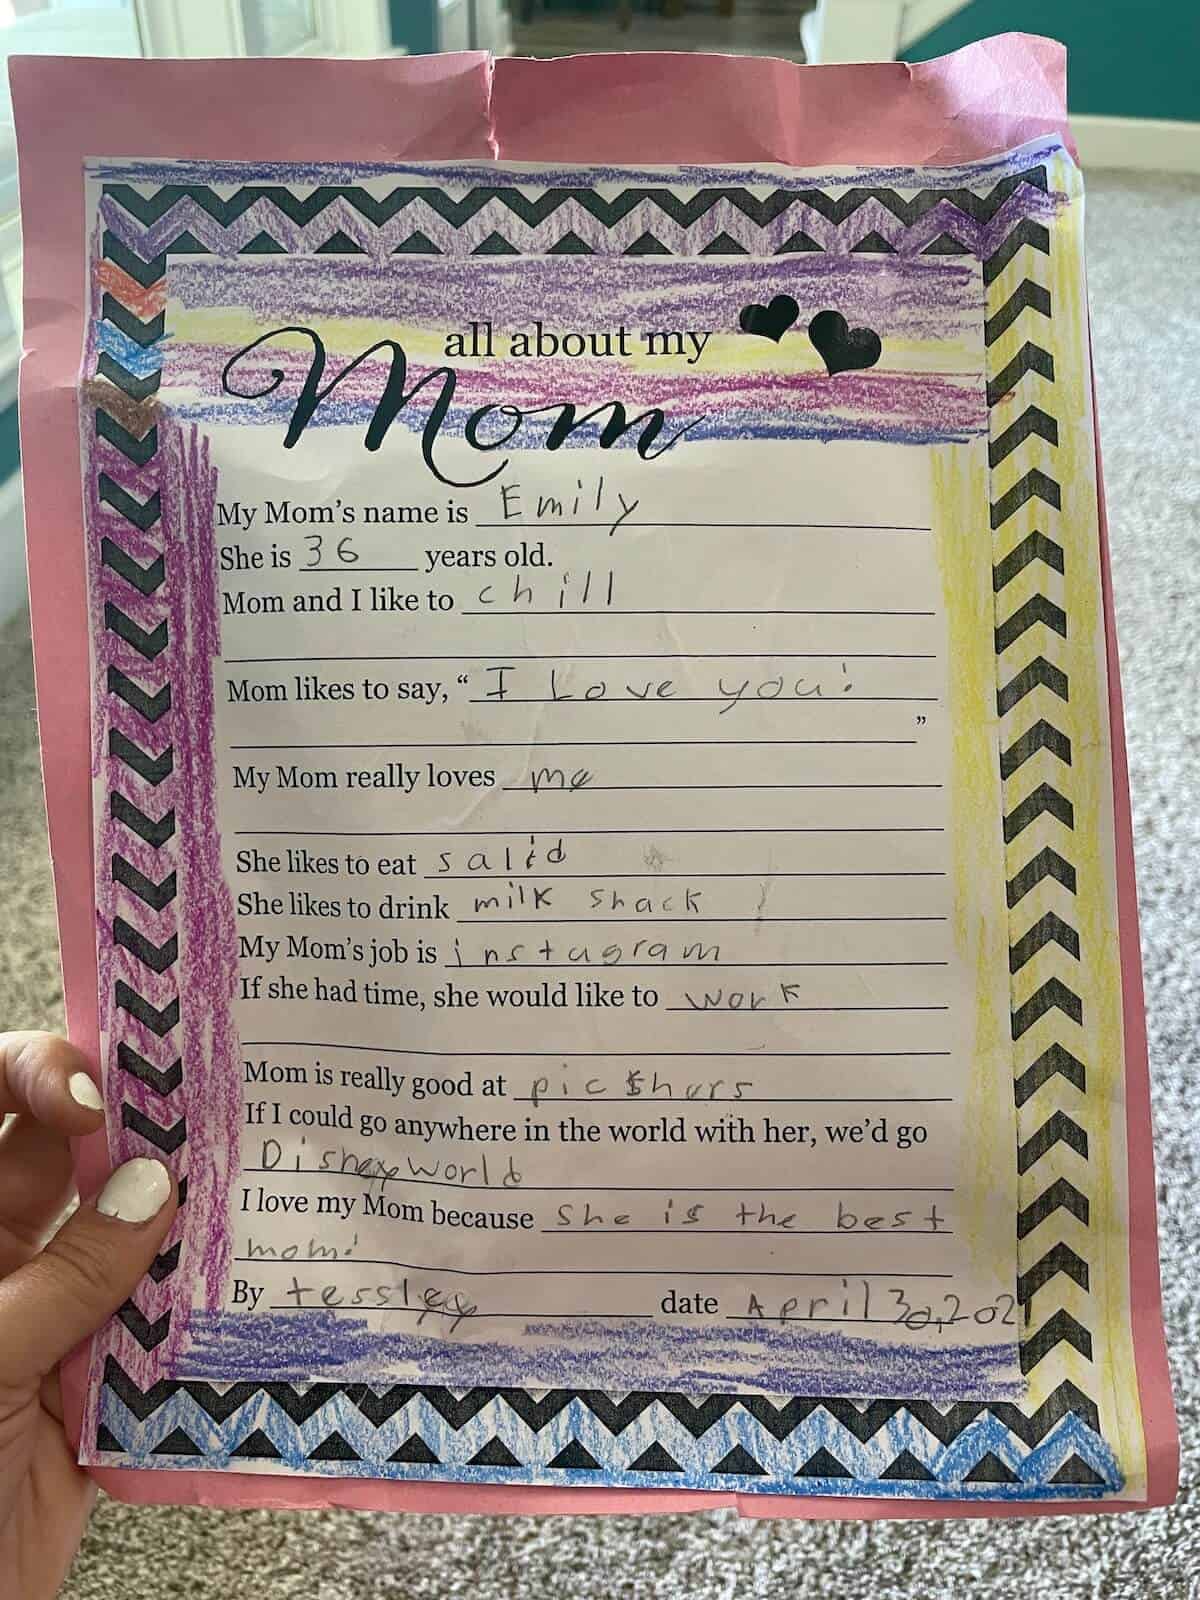 all about my
Mom
My Mom's name is Emily
She is 36 years old.
Mom and I like to chill
Mom likes to say, "I Love you!
"
My Mom really loves me
She likes to eat salid
She likes to drink milk shack
My Mom's job is instugram
If she had time, she would like to work
Mom is really good at picshurs
If I could go anywhere in the world with her, we'd go
Disney world
I love my Mom because she is the best
mom!
By tessley date April 30, 2021